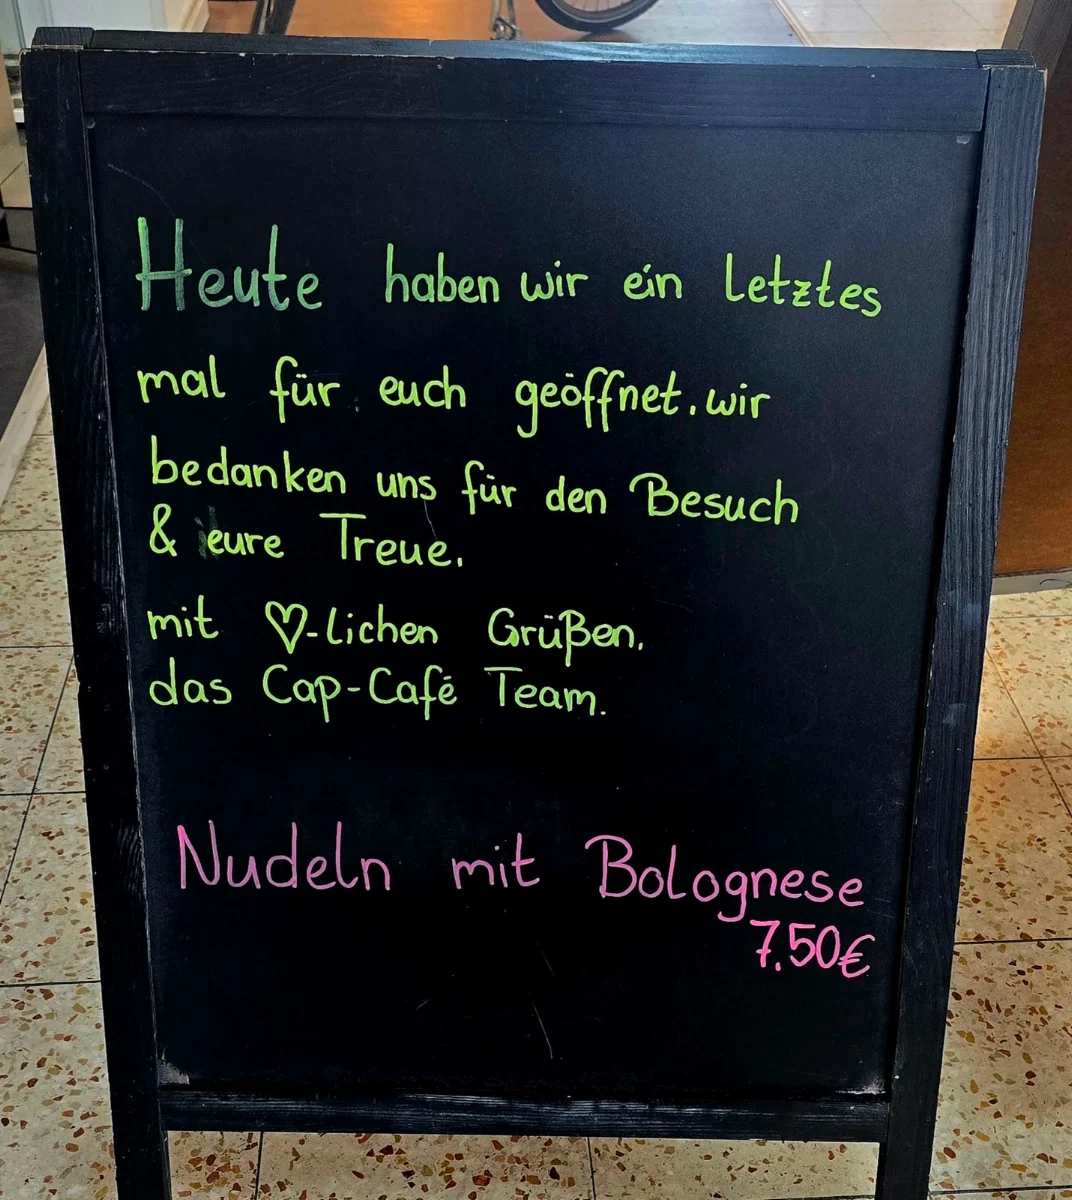 Heute haben wir ein letztes
mal für euch geöffnet. wir
bedanken uns für den Besuch
& eure Treue.
mit ♡-lichen Grüßen,
das Cap-Café Team.
Nudeln mit Bolognese
7.50€